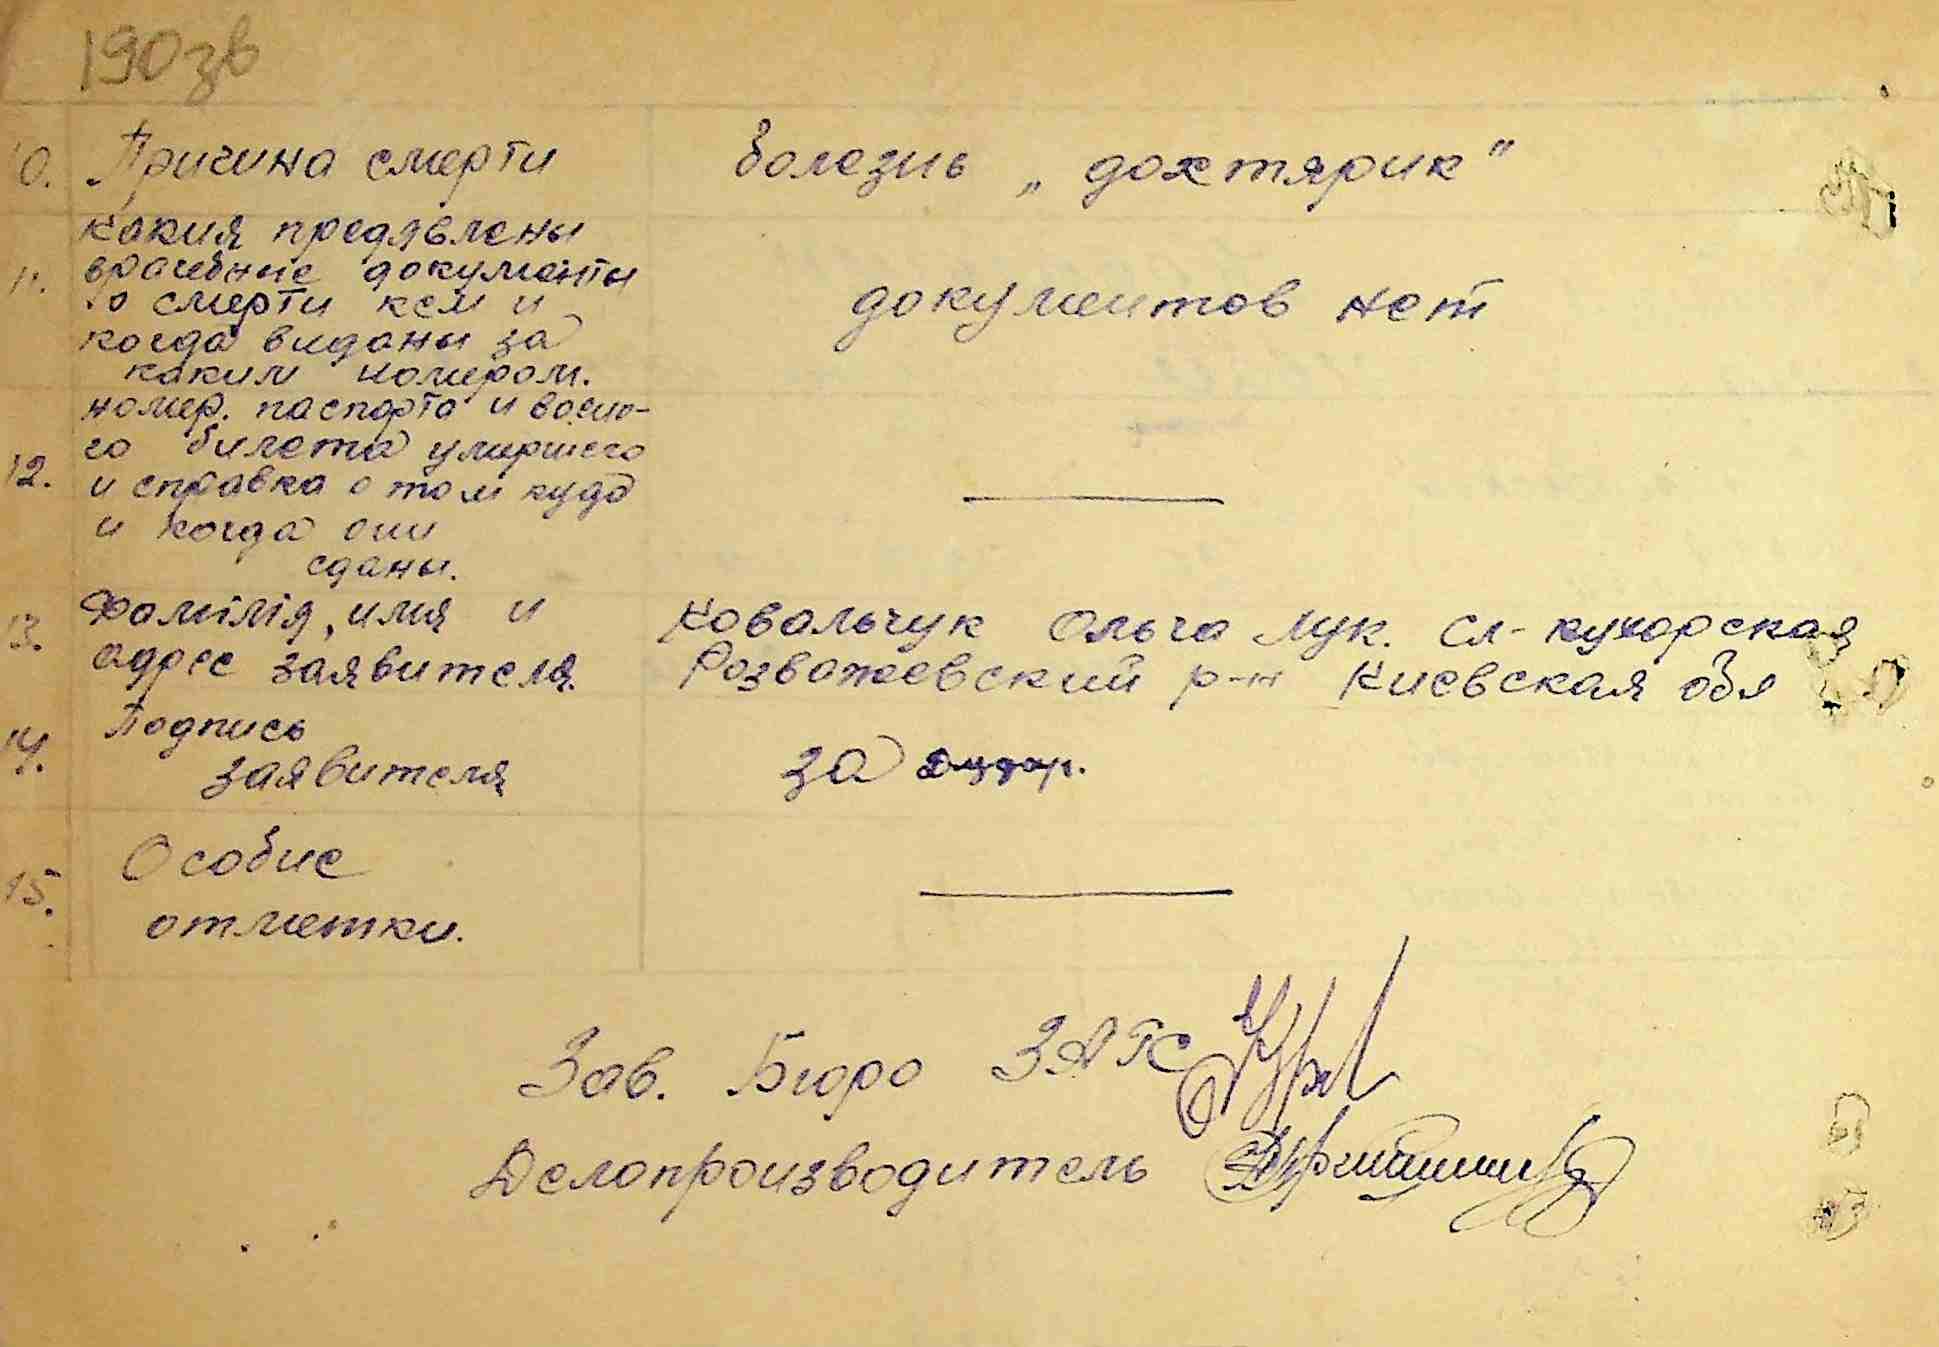 190зв
10. Причина смерти болезнь „дохтярик"
Какия предявлены
11. врачебние документы
о смерти кем и документов нет
когда выданы за
каким номером.
номер. паспорта и военно-
го билета умершего
12. и справка о том куда
и когда они
сданы.
Фамілія, имя и Ковальчук Ольга Лук. Сл-кухорская
13. адрес заявителя. Розважевский р-н Киевская обл
Подпись
14. заявителя за
15. Особие
отметки.
Зав. Бюро ЗАГС
Делопроизводитель